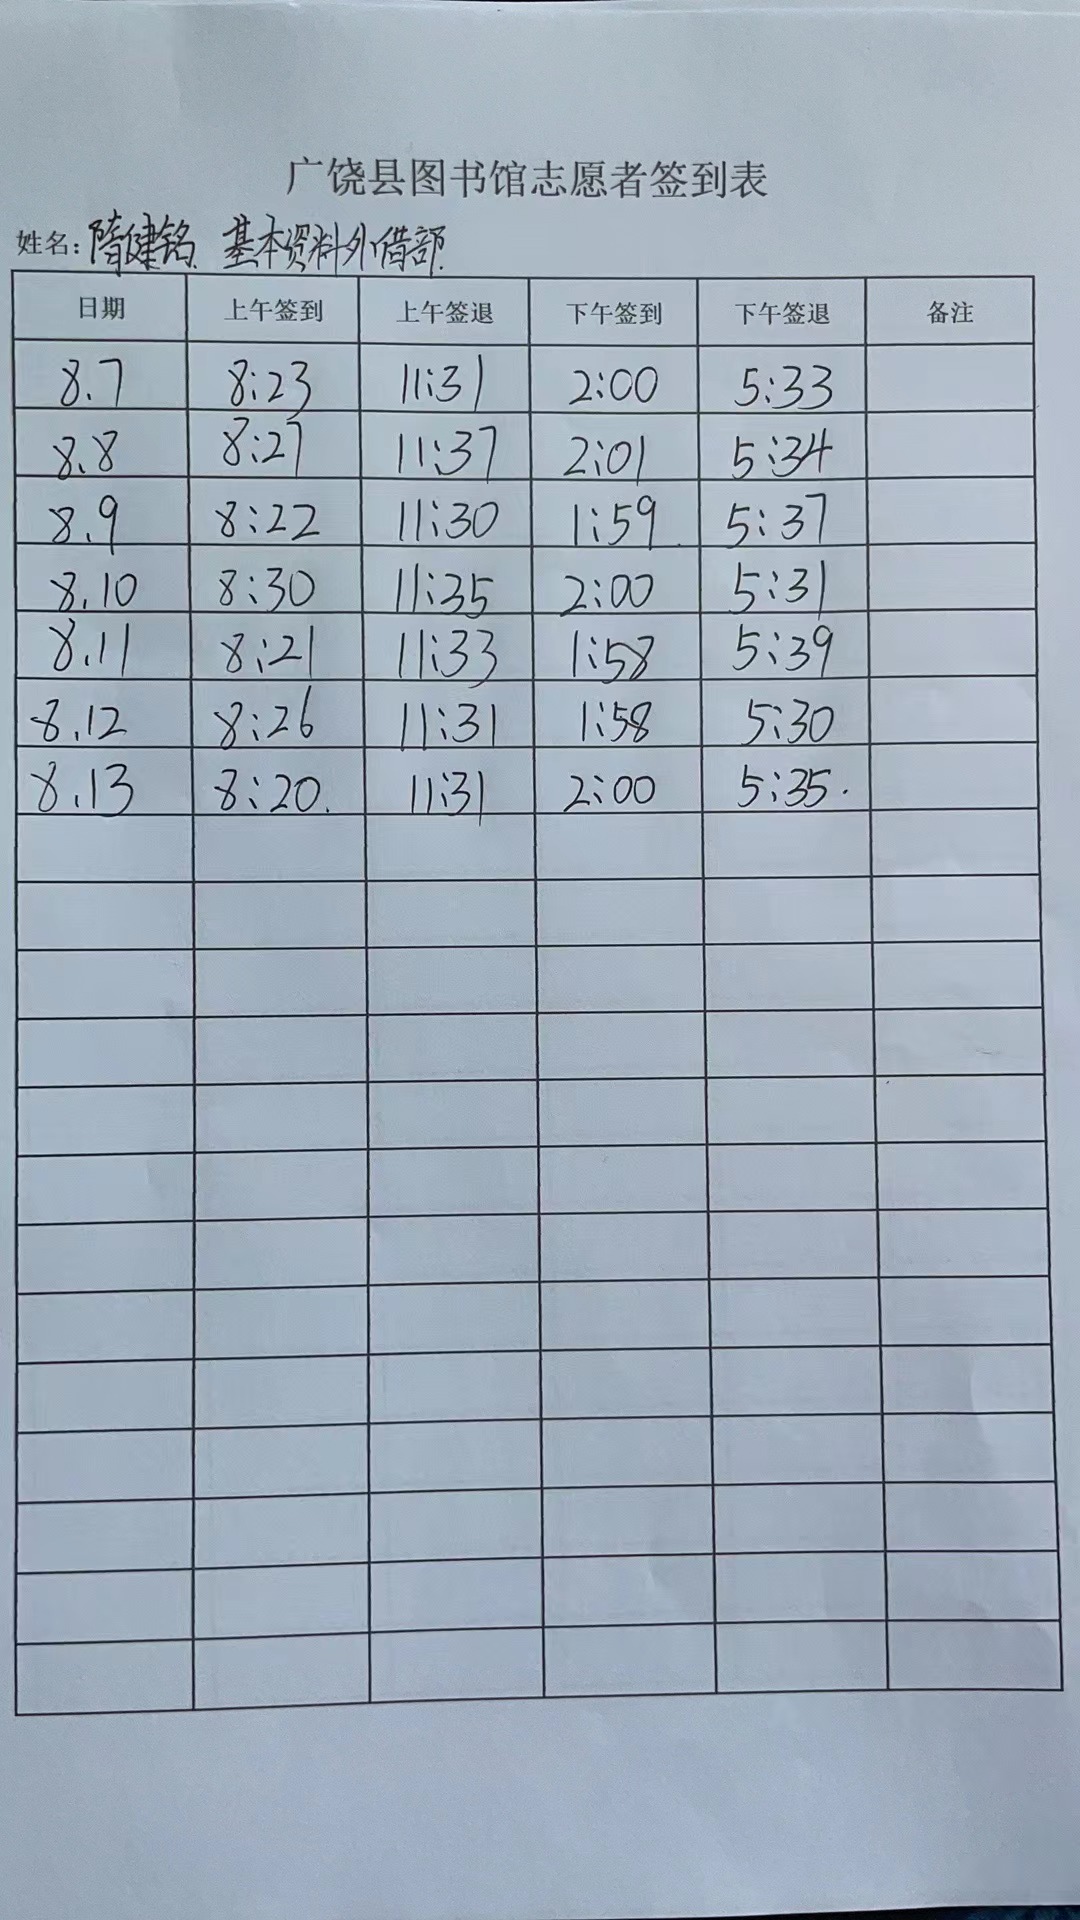 广饶县图书馆志愿者签到表
姓名：隋健铭 基本资料外借部
日期 上午签到 上午签退 下午签到 下午签退 备注
8.7 8:23 11:31 2:00 5:33
8.8 8:27 11:37 2:01 5:34
8.9 8:22 11:30 1:59 5:37
8.10 8:30 11:35 2:00 5:31
8.11 8:21 11:33 1:58 5:39
8.12 8:26 11:31 1:58 5:30
8.13 8:20. 11:31 2:00 5:35.